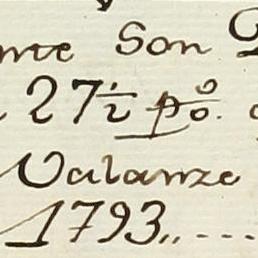 Son
27½ p%.
Valanze
1793,,----